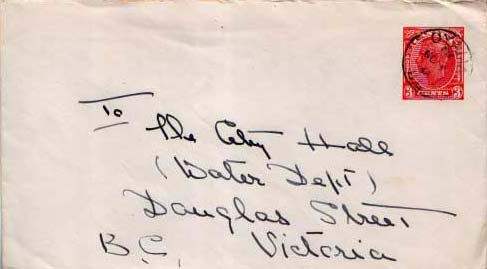 3 CENTS 3
To
The City Hall
(Water Dept)
Douglas Street
B.C. Victoria